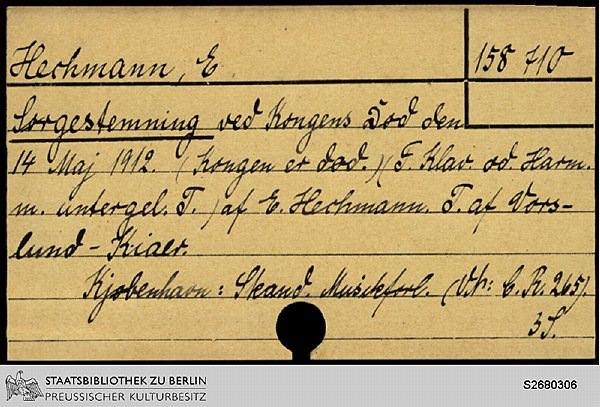 Hechmann, E
158 710
Sorgestemning ved Kongens Død den
14 Maj 1912. (Kongen er død.) (F. Klav od. Harm.
m. untergel. T.) af E. Hechmann. T. af Vors-
lund-Kiaer.
Kjøbenhavn: Skand. Musikforl. (Vh: C. R. 265).
3 S.
STAATSBIBLIOTHEK ZU BERLIN
PREUSSISCHER KULTURBESITZ
S2680306